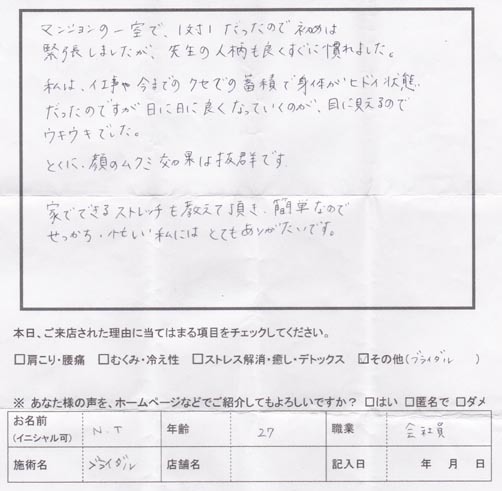 マンションの一室で、1対1だったので初めは
緊張しましたが、先生の人柄も良くすぐに慣れました。
私は、仕事や今までのクセでの蓄積で身体がヒドイ状態
だったのですが日に日に良くなっていくのが、目に見えるので
ウキウキでした。
とくに、顔のムクミ効果は抜群です。
家でできるストレッチも教えて頂き、簡単なので
せっかち・忙しい私にはとてもありがたいです。
本日、ご来店された理由に当てはまる項目をチェックしてください。
□肩こり・腰痛 □むくみ・冷え性 □ストレス解消・癒し・デトックス ☑その他(ブライダル)
※ あなた様の声を、ホームページなどでご紹介してもよろしいですか? □はい □匿名で □ダメ
お名前 (イニシャル可) N.T 年齢 27 職業 会社員
施術名 ブライダル 店舗名 記入日 年 月 日